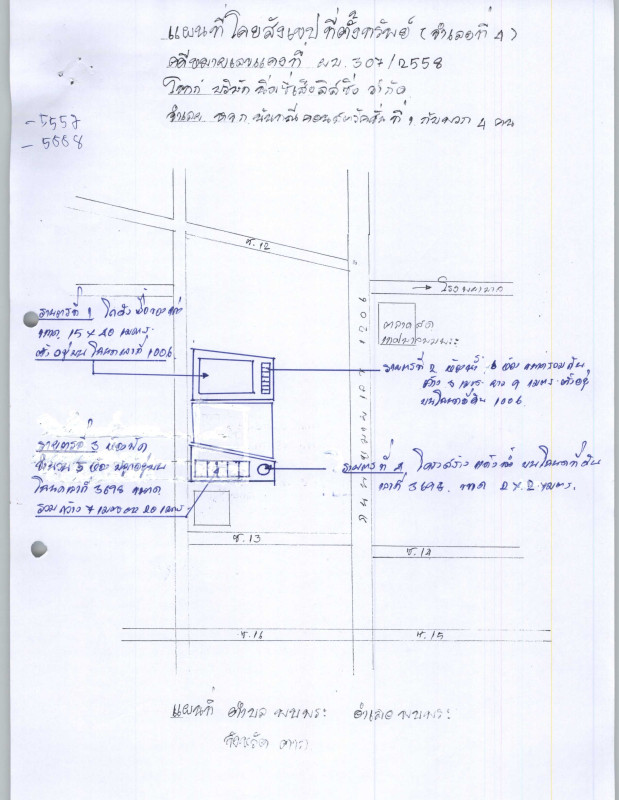 แผนที่โดยสังเขปที่ตั้งทรัพย์ (จำเลยที่ 4)
คดีหมายเลขแดงที่ ผบ.307/2558
โจทก์ บริษัท ลิสซิ่ง จำกัด
จำเลย หจก. ที่ 1 กับพวก 4 คน
- 5557
- 5558
ซ.12
โรงพยาบาล
ตลาดสด
เทศบาลพบพระ
ถนนหมายเลข 1206
รายการที่ 1 โกดัง
ขนาด 15 x 20 เมตร
ตั้งอยู่บนโฉนดเลขที่ 1006
รายการที่ 2 ห้องน้ำ 6 ห้อง ขนาดรวมกัน
กว้าง เมตร ยาว 9 เมตร ตั้งอยู่
บนโฉนดที่ดิน 1006
รายการที่ 3 ห้องพัก
จำนวน 5 ห้อง ปลูกอยู่บน
โฉนดเลขที่ 3698 ขนาด
รวมกว้าง 4 เมตร ยาว 20 เมตร
รายการที่ 4 โครงสร้าง บนโฉนดที่ดิน
เลขที่ 3698 ขนาด 2 x 2 เมตร
ซ.13
ซ.14
ซ.16
ซ.15
แผนที่ ตำบล พบพระ อำเภอ พบพระ
จังหวัด ตาก